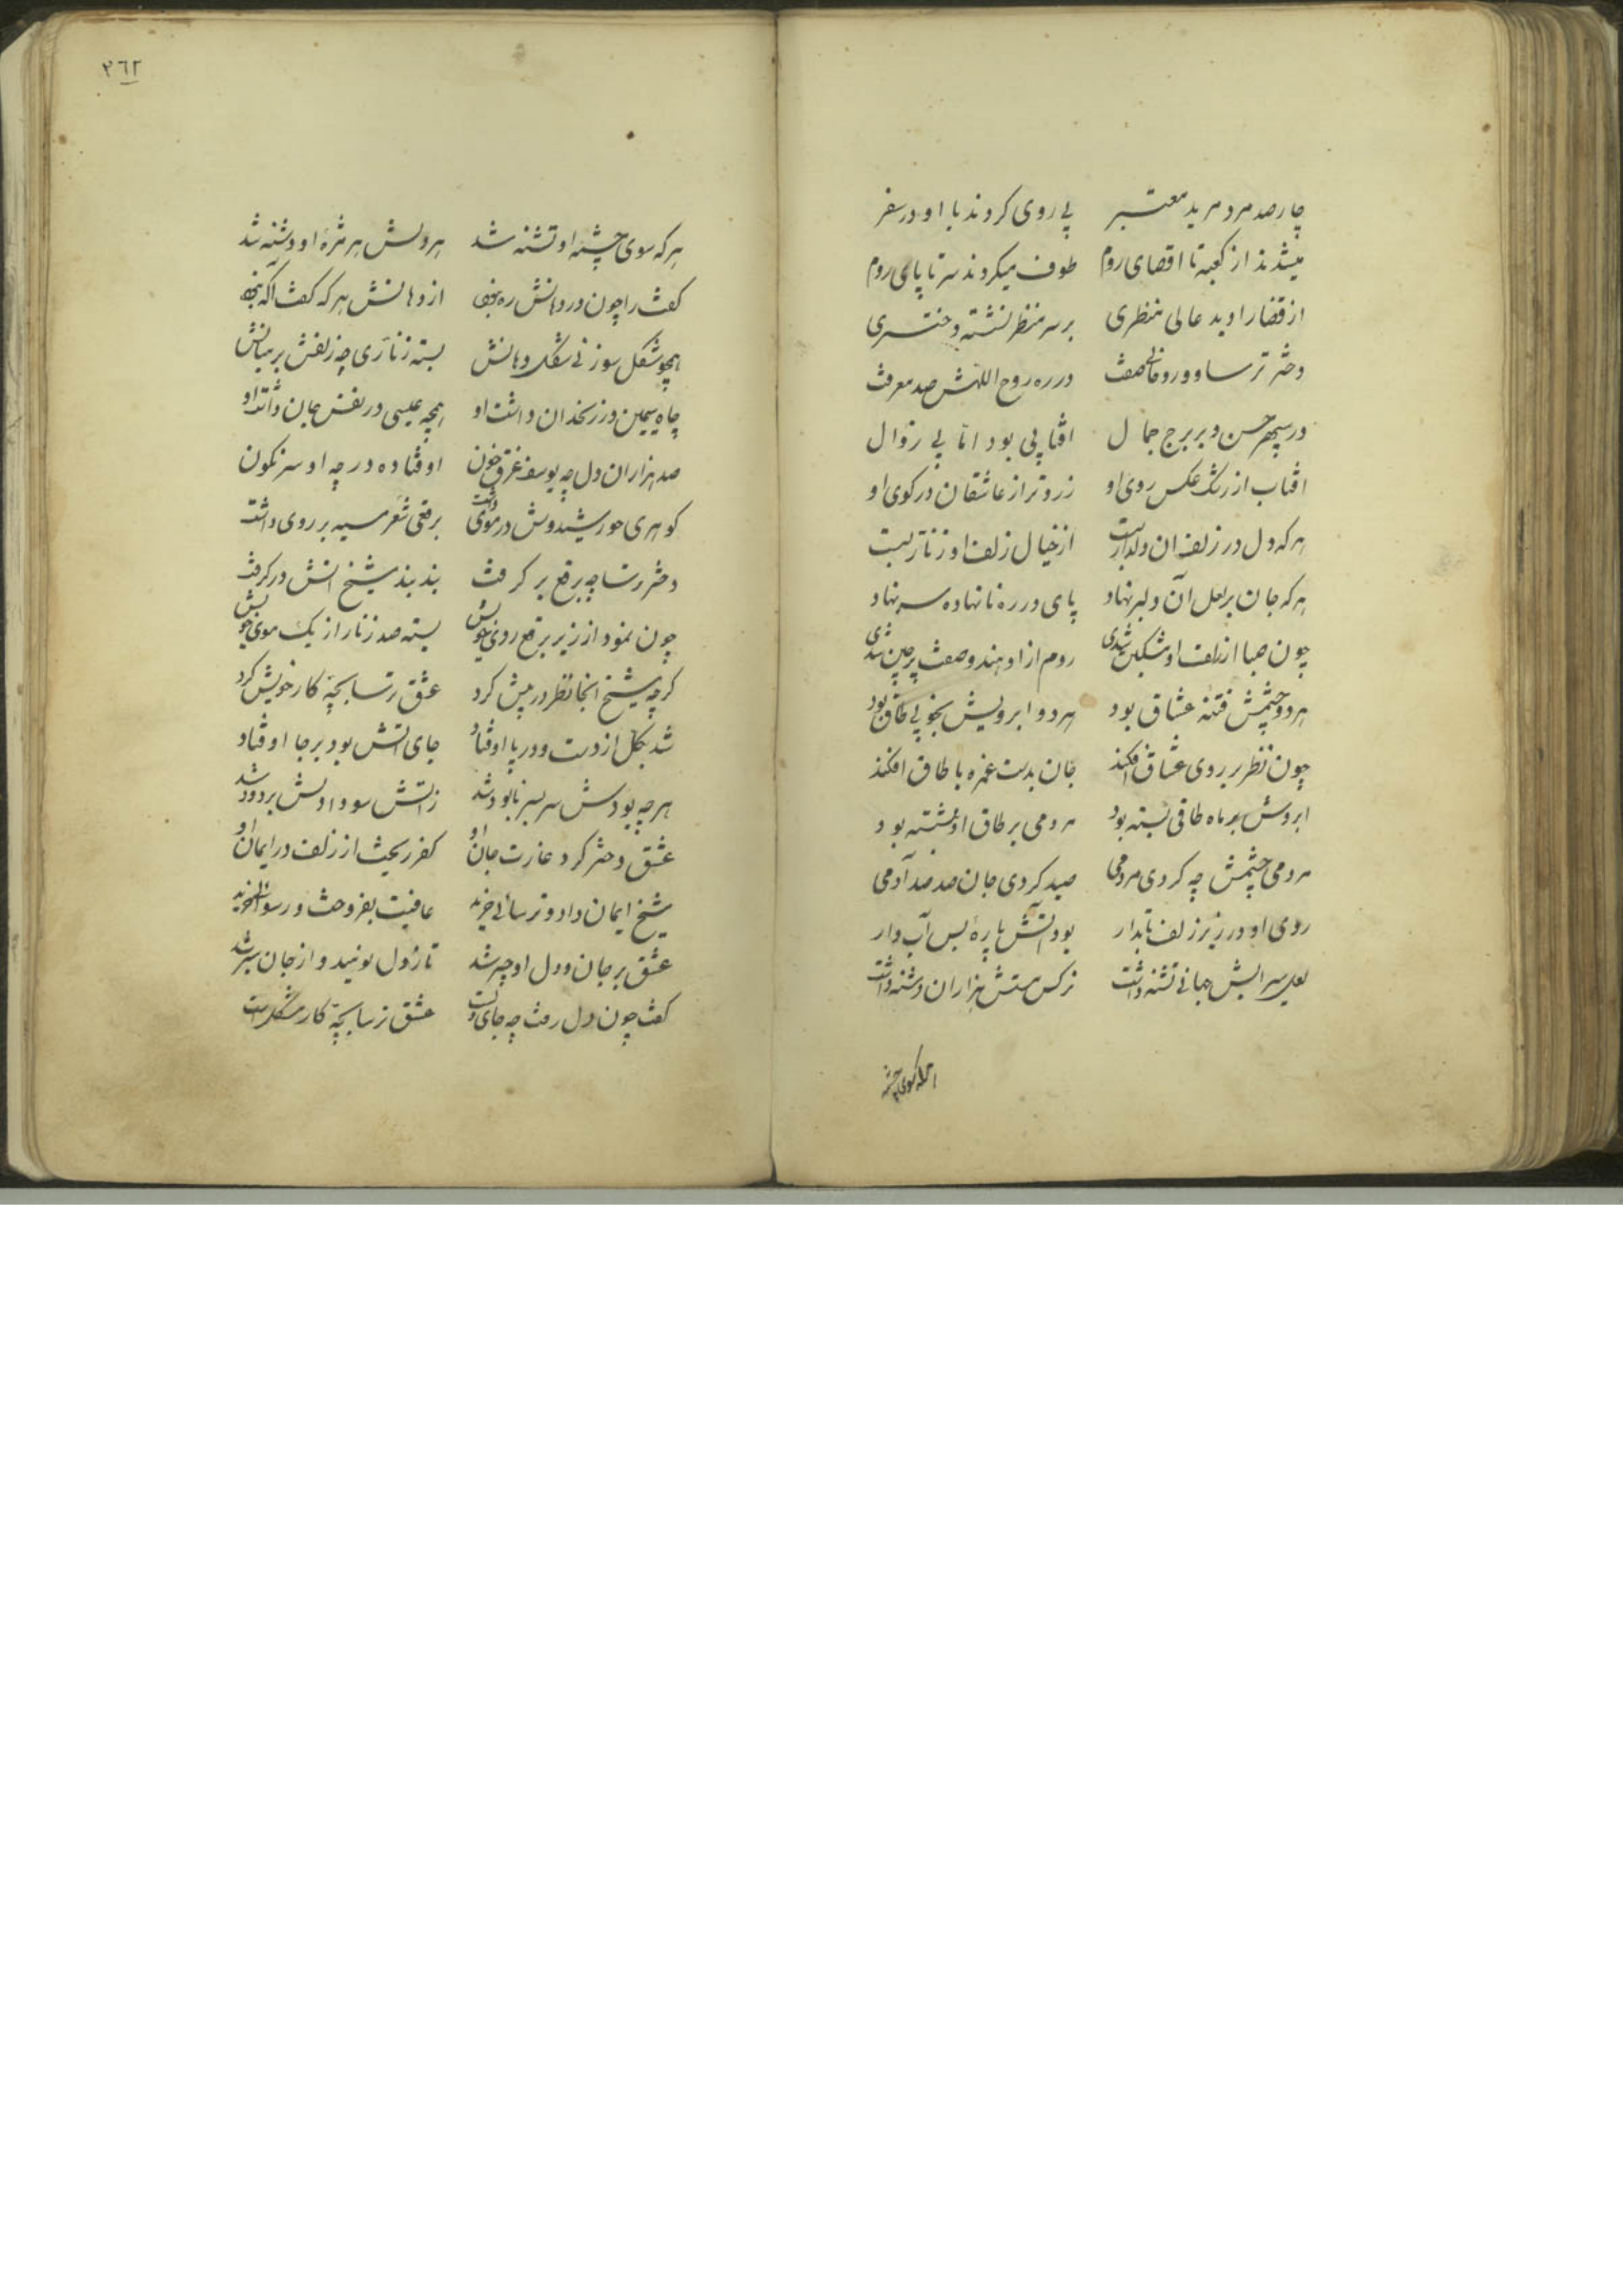 چارصد مرد مرید معتبر پی روی کردند با او در سفر
میشدند از کعبه تا اقصای روم طوف میکردند سر تا پای روم
از قضا را دید عالی منظری بر سر منظر نشسته دختری
دختر ترسا و روحانی صفت در ره روح اللهش صد معرفت
در سپهر حسن و بر برج جمال افتابی بود اما بی زوال
افتاب از رشک عکس روی او زردتر از عاشقان در کوی او
هر که دل در زلف ان دلدار بست از خیال زلف او زنار بست
هر که جان بر لعل آن دلبر نهاد پای در ره نا نهاده سر نهاد
چون صبا از زلف او مشکین شدی روم از او هندو صفت پر چین شدی
هر دو چشمش فتنه عشاق بود هر دو ابرویش بخوبی طاق بود
چون نظر بر روی عشاق افکند جان بدست غمزه با طاق افکند
ابروش بر ماه طاقی بسته بود مردمی بر طاق او بنشسته بود
مردمی چشمش چه کردی مردمی صید کردی جان صد صد آدمی
روی او در زیر زلف تابدار بود آتش پاره بس آب دار
لعل سیرابش جهانی تشنه داشت نرکس مستش هزاران دشنه داشت
هرکه سوی چشمه
٣٦٢
هر که سوی چشمه او تشنه شد در دلش هر مژه او دشنه شد
کفت را چون در دهانش ره نبود از دهانش هر که کفت اکه نبود
همچو شکل سوزنی شکل دهانش بسته زناری چه زلفش بر میانش
چاه سیمین در زنخدان داشت او همچه عیسی در نفس جان داشت او
صد هزاران دل چه یوسف غرق خون اوفتاده در چه او سرنکون
کوهری خورشیدوش در موی داشت برقعی شعر سیه بر روی داشت
دختر ترسا چه برقع بر کرفت بند بند شیخ اتش در کرفت
چون نمود از زیر برقع روی خویش بسته صد زنار از یک موی خویش
کرچه شیخ انجا نظر در پیش کرد عشق ترسا بچه کار خویش کرد
شد بکل از دست و در پا اوفتاد جای اتش بود بر جا اوفتاد
هر چه بودش سر بسر نابود شد ز اتش سودا دلش بر دود شد
عشق دختر کرد غارت جان او کفر ریخت از زلف در ایمان او
شیخ ایمان داد و ترسائی خرید عافیت بفروخت و رسوائی خرید
عشق بر جان و دل او چیر شد تا ز دل نومید و از جان سیر شد
کفت چون دل رفت چه جای دلست عشق ترسا بچه کار مشکلست